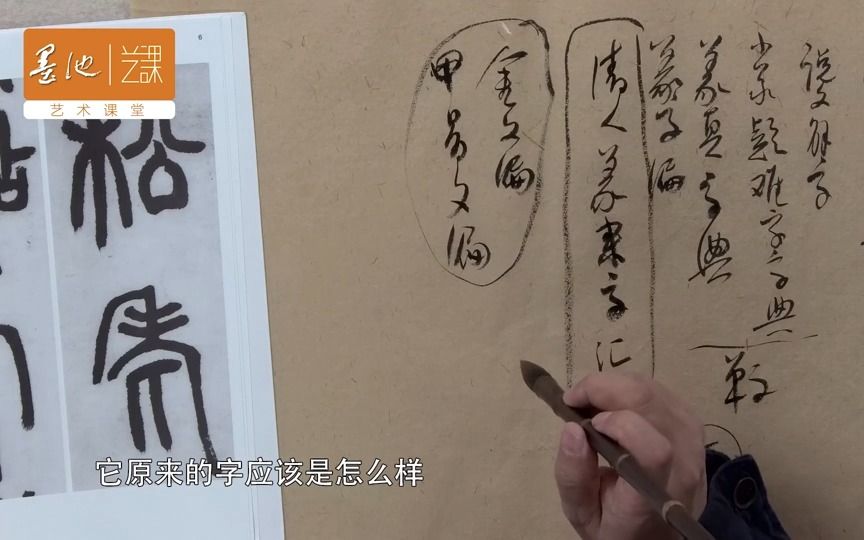 墨池 艺课
艺术课堂
6
说文解字
小篆疑难字字典
篆真字典
篆字编
清人篆隶字汇
金文编
甲骨文编
松
它原来的字应该是怎么样